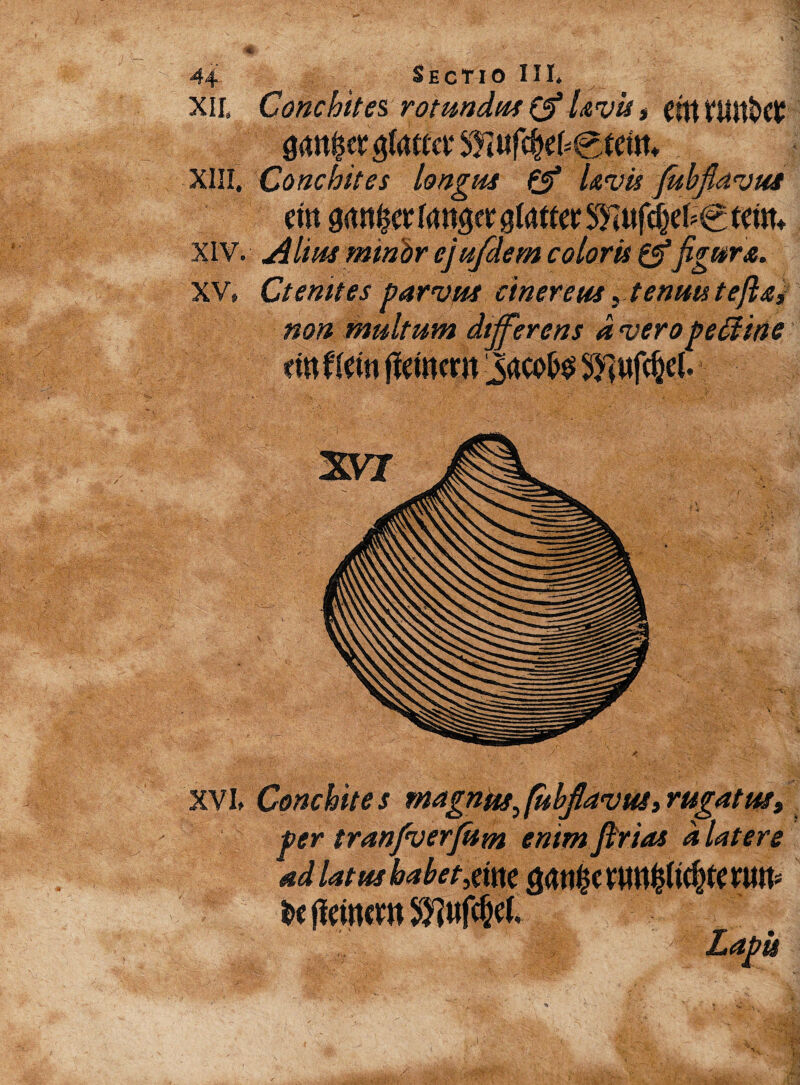 44 SECTIO III.
XII. Conchites rotundus & lævis, ein runder
gantzer glatter Muschel-Stein.
XIII. Conchites longus & lævis subflavus
ein gantzer langer glatter Muschel-Stein.
XIV. Alius minòr ejusdem coloris & figuræ.
XV. Ctenites parvus cinereus, tenuis testæ,
non multum differens à vero pectine
ein klein steinern Jacobs Muschel.
XVI
XVI. Conchites magnus, subflavus, rugatus,
per transversum enim strias à latere
ad latus habet, eine gantze runtzlichte run-
de steinern Muschel.
Lapis